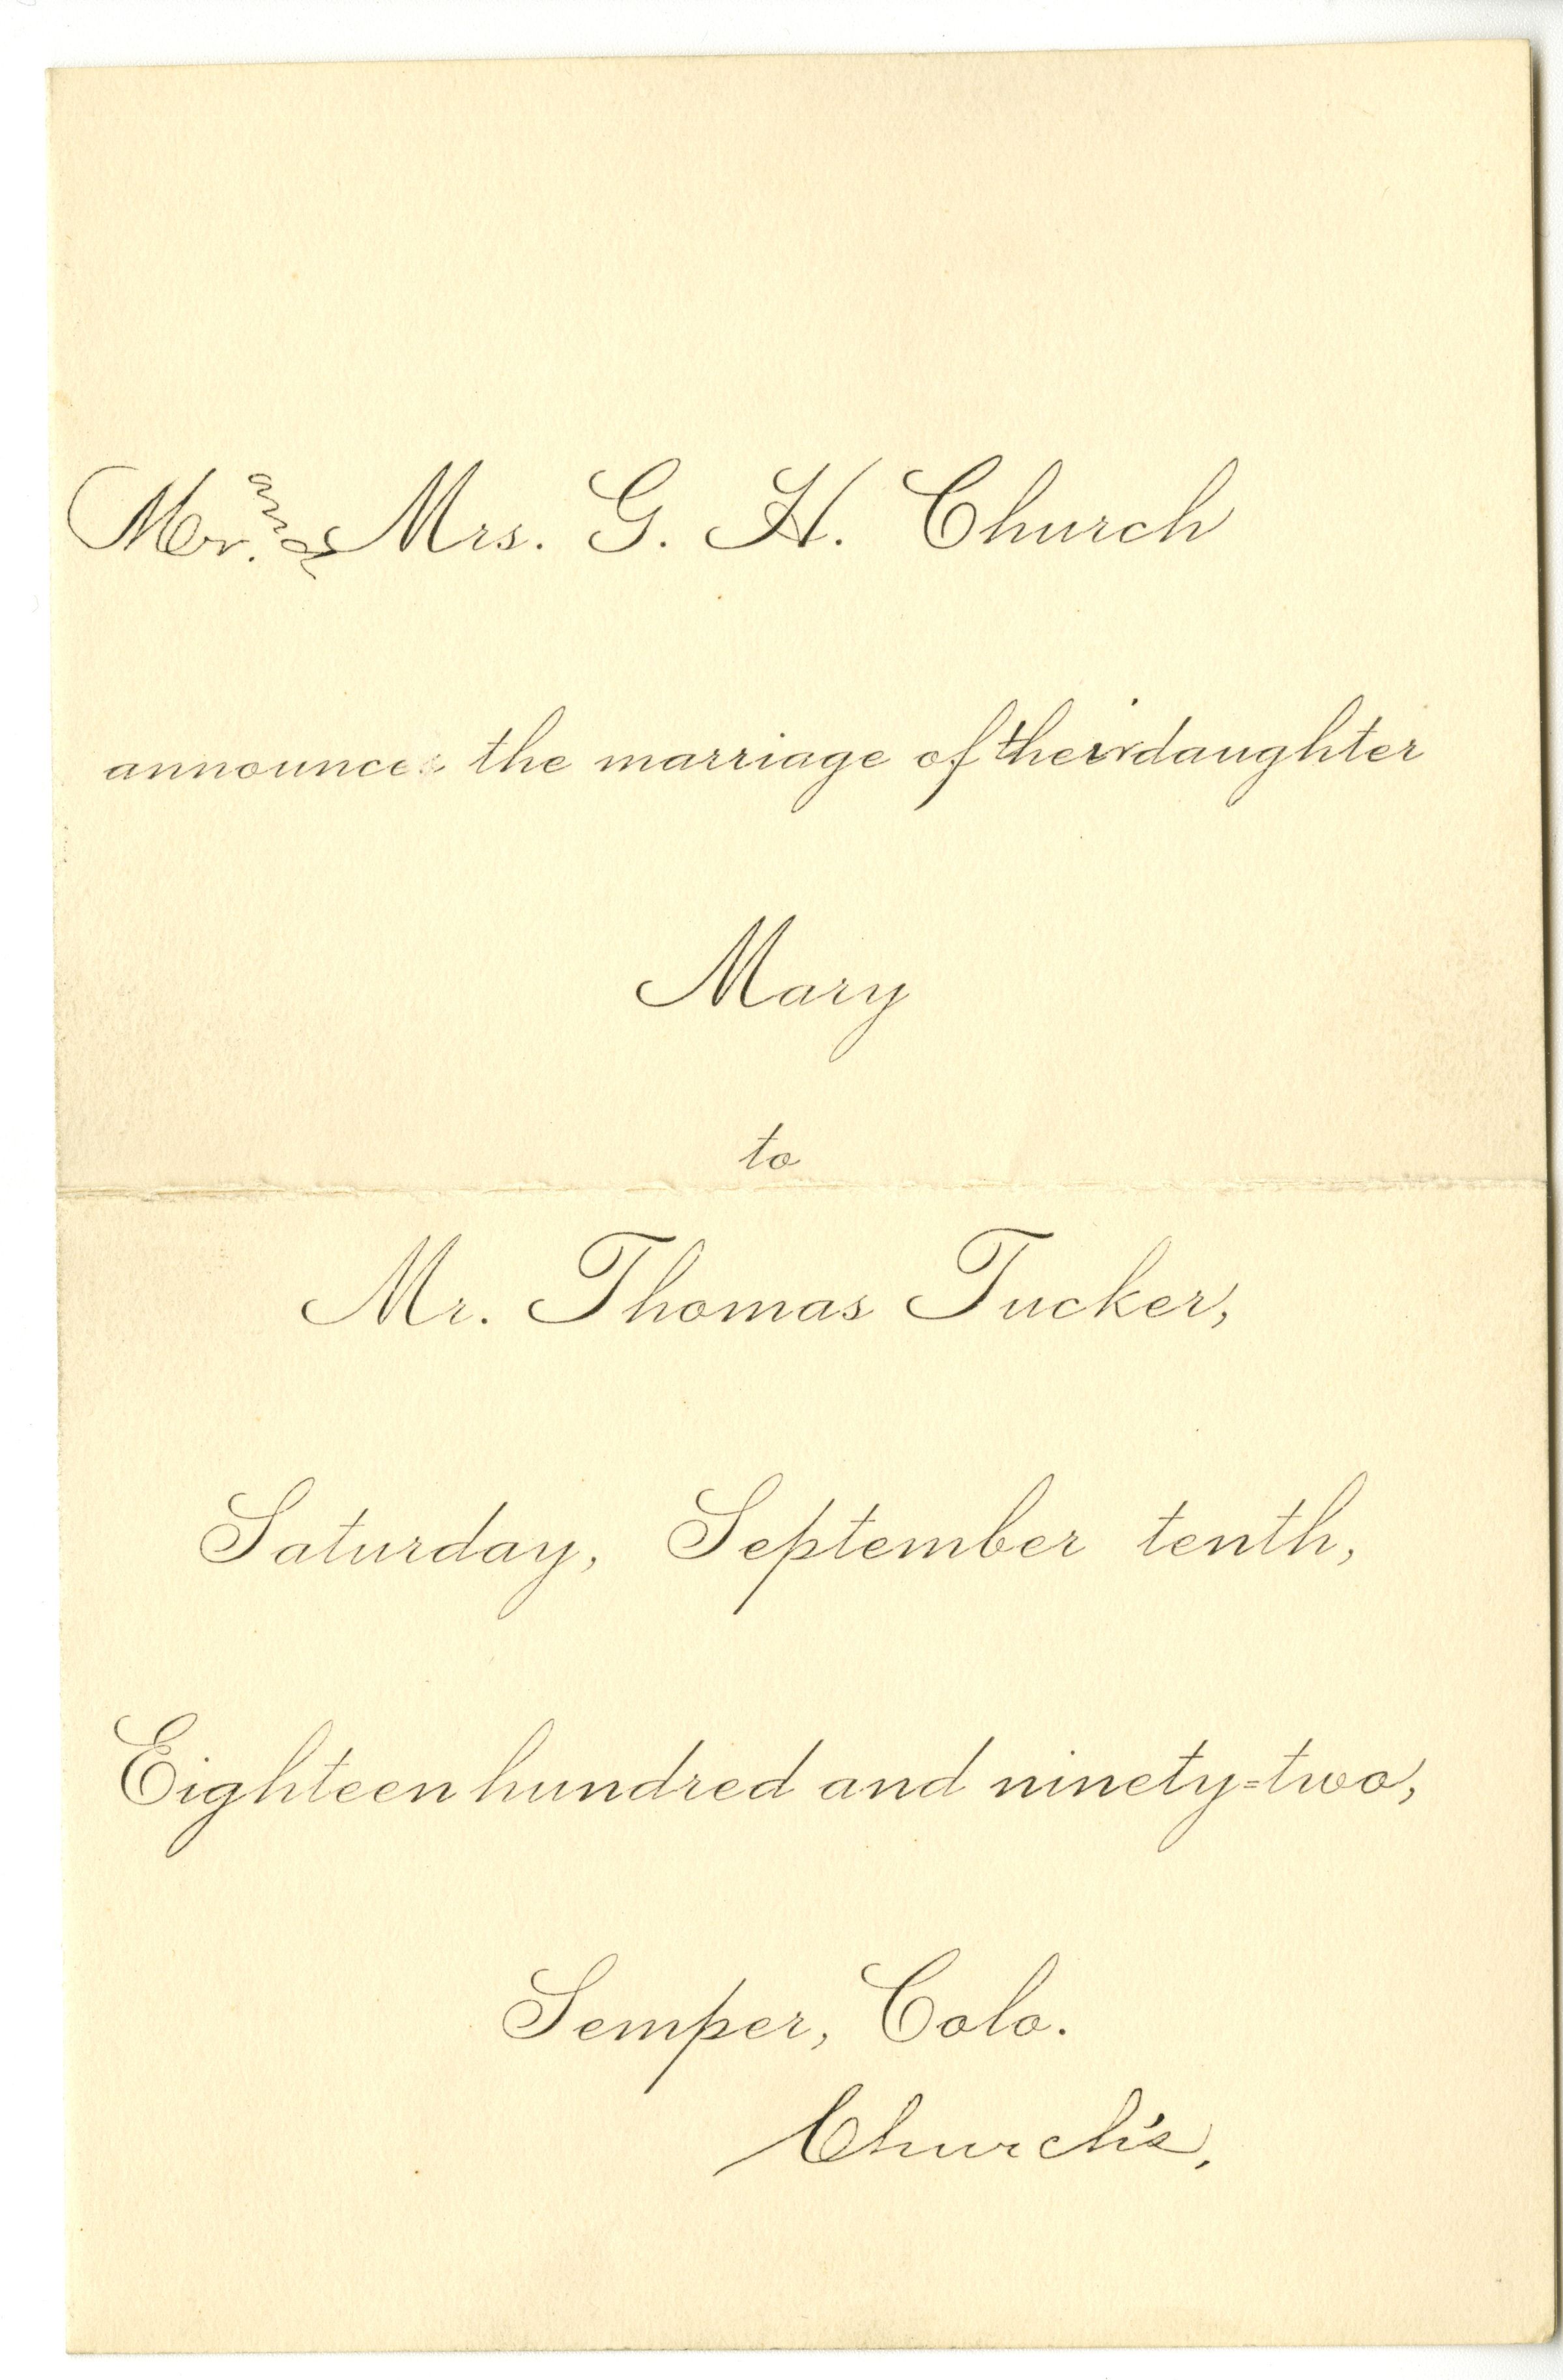 Mr. and Mrs. G. H. Church
announce the marriage of their daughter
Mary
to
Mr. Thomas Tucker,
Saturday, September tenth,
Eighteen hundred and ninety=two,
Semper, Colo.
Church's.